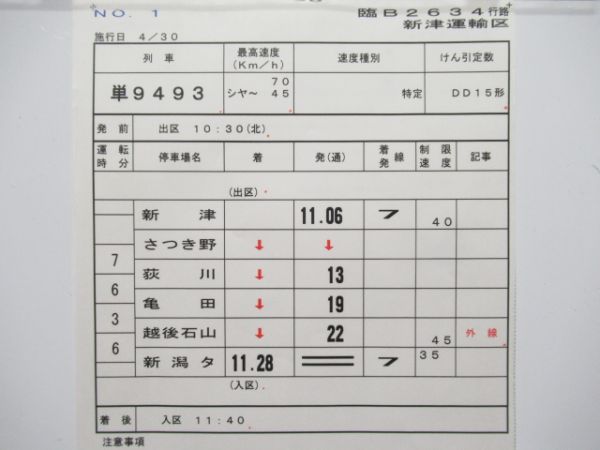 NO. 1
臨B2634行路
新津運輸区
施行日 4/30
列車 最高速度(Km/h) 速度種別 けん引定数
単9493 シヤ～ 70 45 特定 DD15形
発前 出区 10:30(北)
運転時分 停車場名 着 発(通) 着発線 制限速度 記事
(出区)
新津 11.06 フ 40
さつき野 ↓ ↓
7 荻川 ↓ 13
6 亀田 ↓ 19
3 越後石山 ↓ 22 45 外線
6 新潟タ 11.28 フ 35
(入区)
着後 入区 11:40
注意事項